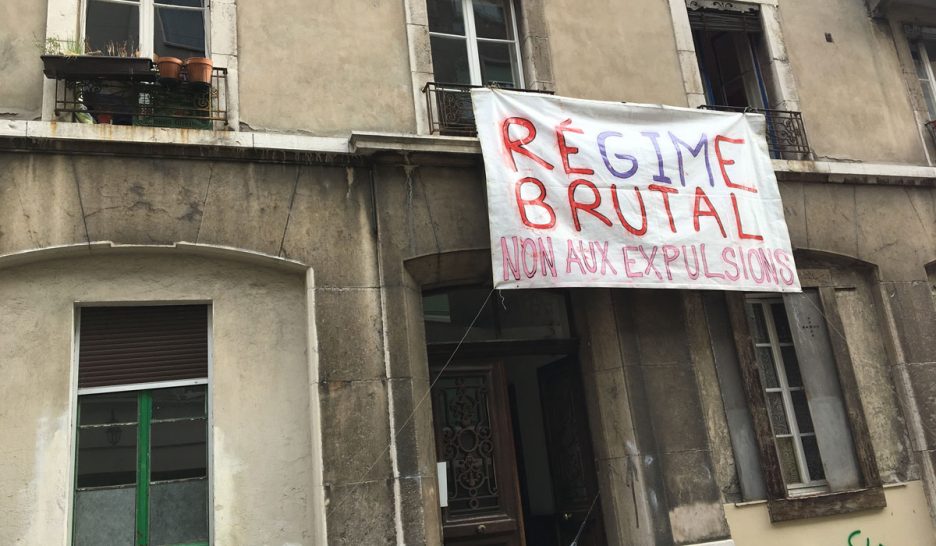 RÉGIME
BRUTAL
NON AUX EXPULSIONS